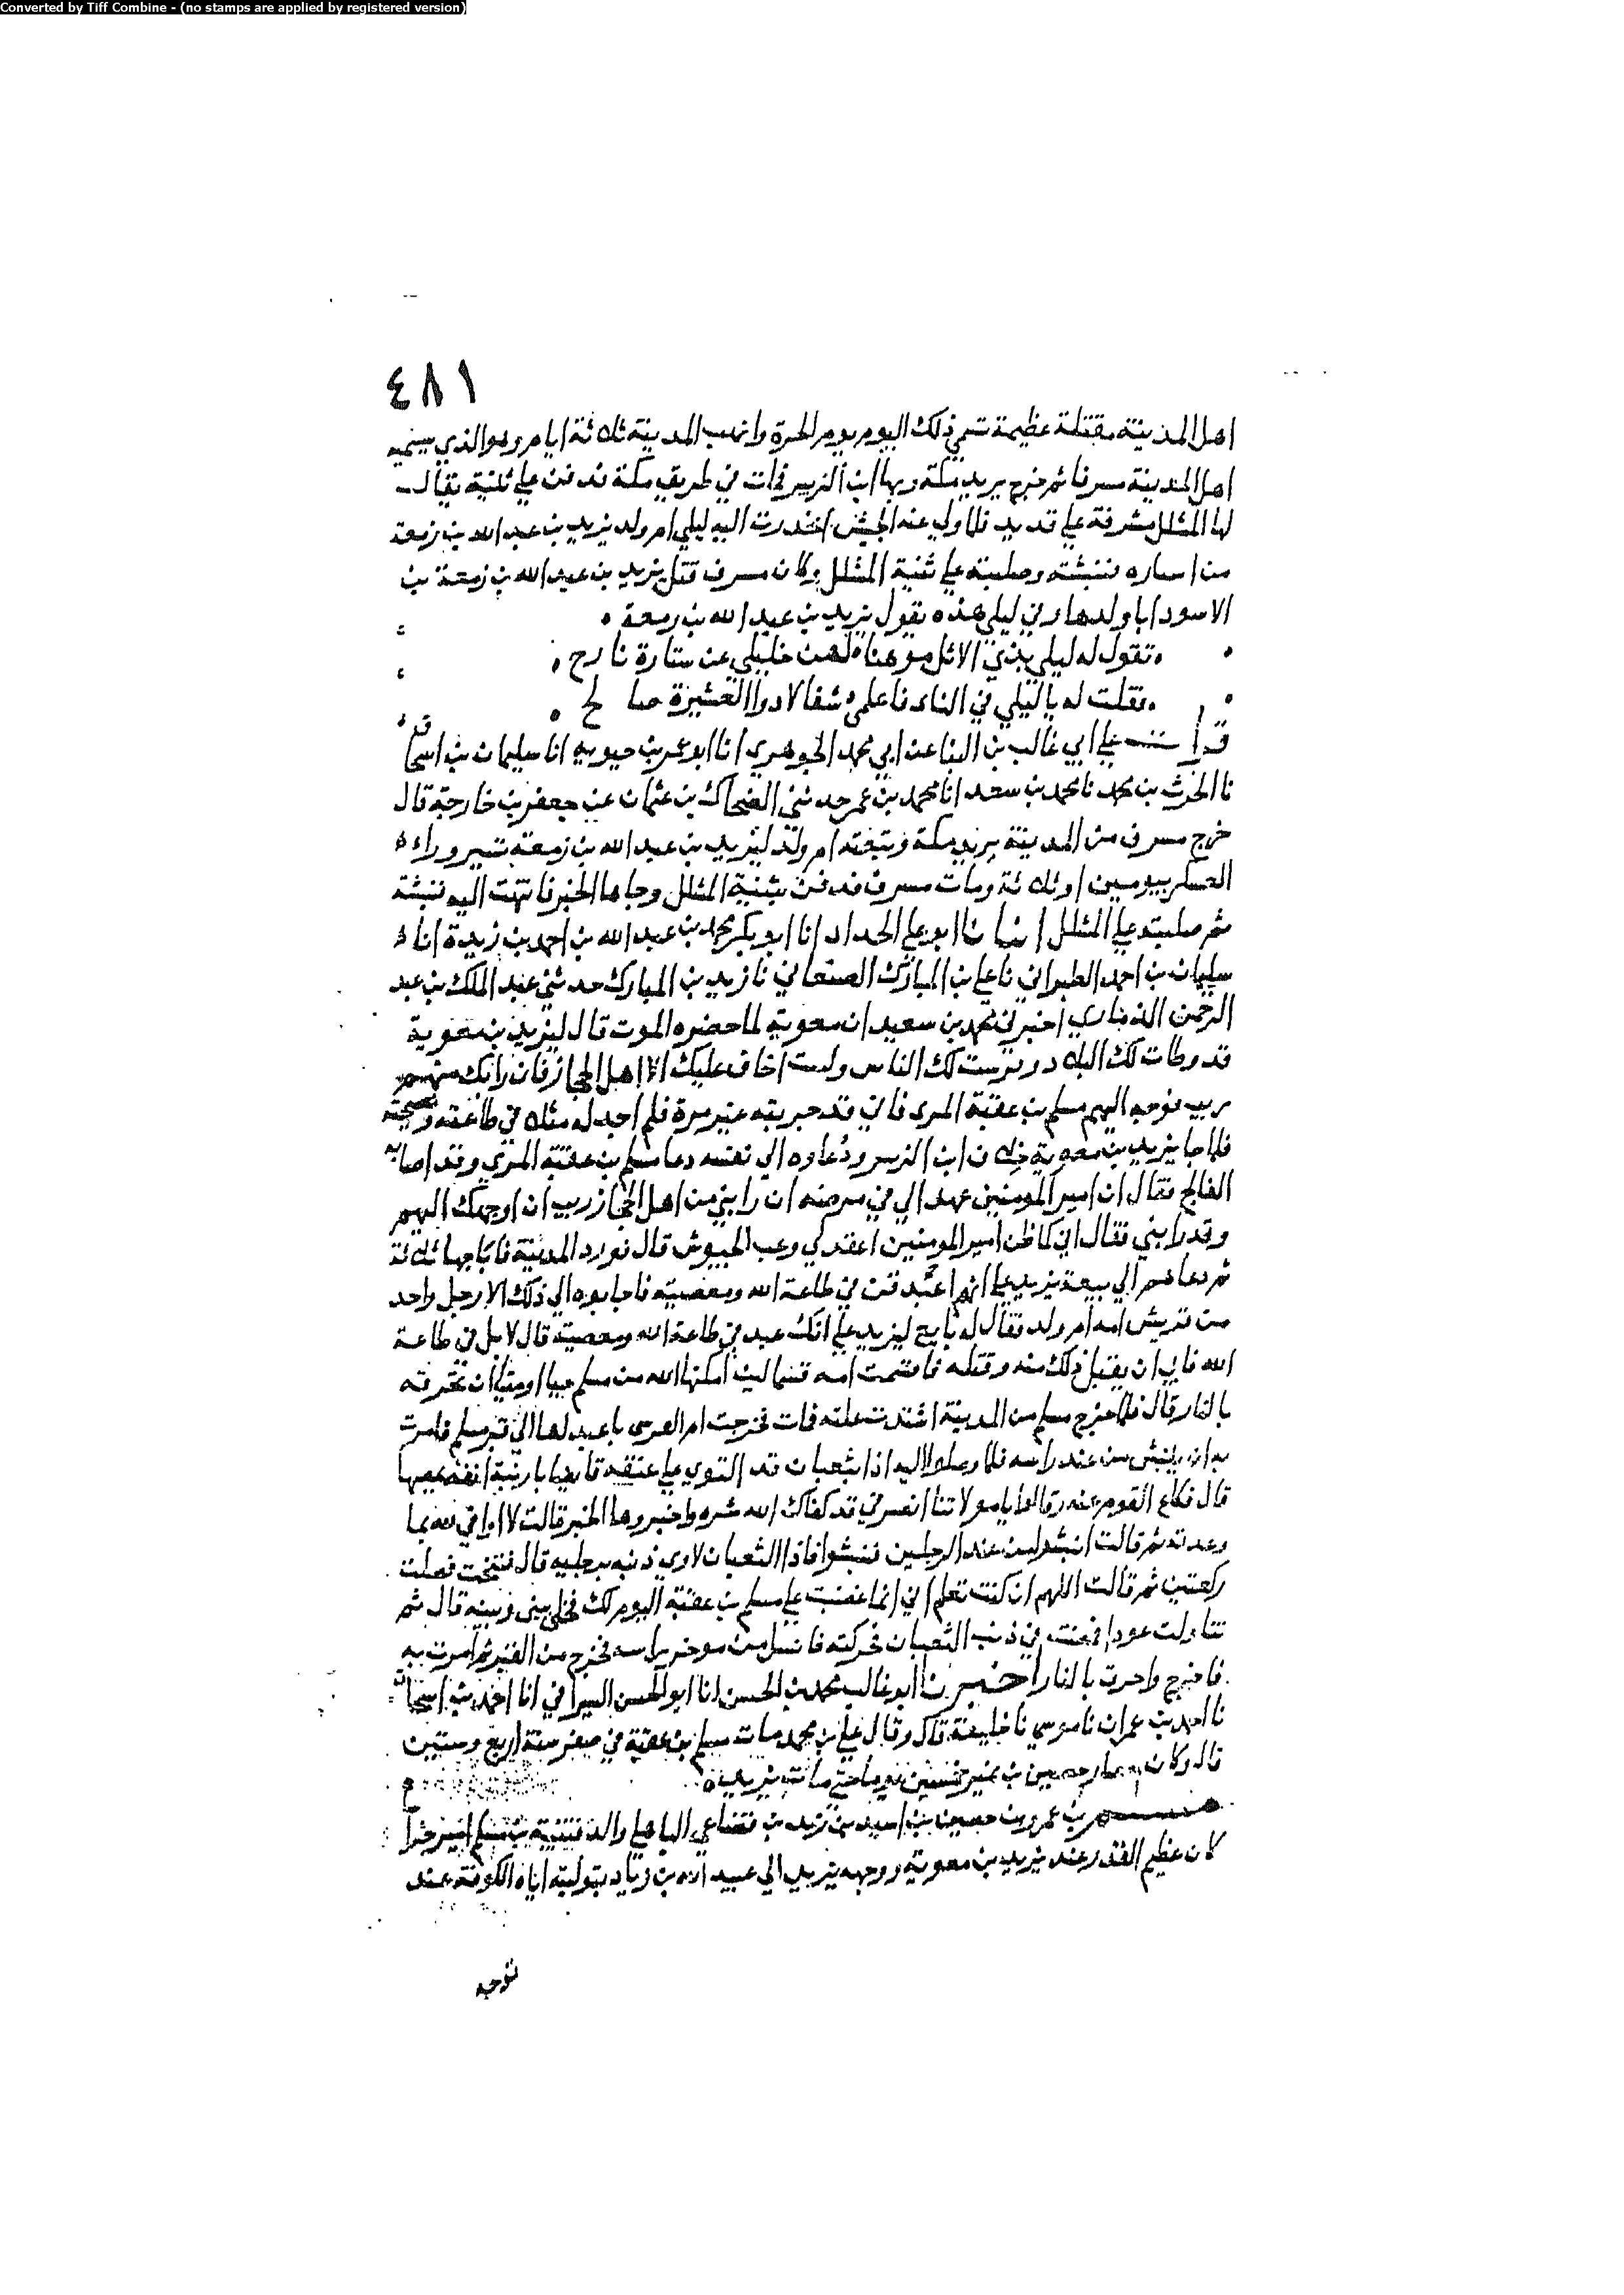 Converted by Tiff Combine - (no stamps are applied by registered version)
٤٨١
اهل المدينة مقتلة عظيمة سمي ذلك اليوم يوم الحرة وانهب المدينة ثلاثة ايام وهو الذي يسميه
اهل المدينة مسرفا ثم خرج يريد مكة وبها ابن الزبير فمات في طريق مكة فدفن على ثنية يقال
لها المشلل مشرفة على قديد فلما ولى عنه الجيش انحدرت اليه ليلى ام ولد يزيد بن عبد الله بن زمعة
من استاره فنبشته وصلبته على ثنية المشلل وكان مسرف قتل يزيد بن عبد الله بن زمعة بن
الاسود ابا ولدها وفي ليلى هذه يقول يزيد بن عبد الله بن زمعة
تقول له ليلى بذي الاثل موهنا لهن خليلي عن ستارة نازح
فقلت له يا ليلى في الناى فاعلمي شفا لادوا العشيرة صالح
قرات على ابي غالب بن البنا عن ابي محمد الجوهري انا ابو عمر بن حيويه انا سليمان بن اسحاق
نا الحرث بن محمد نا محمد بن سعد انا محمد بن عمر حدثني الضحاك بن عثمان عن جعفر بن خارجة قال
خرج مسرف من المدينة يريد مكة وتبعته ام ولد ليزيد بن عبد الله بن زمعة تسير وراء
العسكر بيومين او ثلاثة ومات مسرف فدفن بثنية المشلل وجاها الخبر فانتهت اليه فنبشته
ثم صلبته على المشلل انبانا ابو علي الحداد انا ابو بكر محمد بن عبد الله بن احمد بن ريذة انا
سليمان بن احمد الطبراني نا علي بن المبارك الصنعاني نا زيد بن المبارك حدثني عبد الملك بن عبد
الرحمن الذماري اخبرني محمد بن سعيد ان معوية لما حضره الموت قال ليزيد بن معوية
قد وطات لك البلاد وفرشت لك الناس ولست اخاف عليك الا اهل الحجاز فان رابك منهم
ريب فوجه اليهم مسلم بن عقبة المرى فاني قد جربته غير مرة فلم اجد له مثلا في طاعته ونصيحته
فلما جا يزيد بن معوية خلاف ابن الزبير ودعاوه الى نفسه دعا مسلم بن عقبة المري وقد اصابه
الفالج فقال ان امير المومنين عهد الي في مرضه ان رابني من اهل الحجاز ريب ان اوجهك اليهم
وقد رابني فقال اني كما ظن امير المومنين اعقد لي وعب الجيوش قال فورد المدينة فاباحها ثلاثة
ثم دعاهم الى بيعة يزيد على انهم اعبد قن في طاعة الله ومعصيته فاجابوه الى ذلك الا رجل واحد
من قريش امه ام ولد فقال له بايع ليزيد على انك عبد في طاعة الله ومعصيته قال لا بل في طاعة
الله فابى ان يقبل ذلك منه وقتله فاقسمت امه قسما لين امكنها الله من مسلم حيا او ميتا ان تحرقه
بالنار قال فلما خرج مسلم من المدينة اشتدت علته فمات فخرجت ام القرسى باعبد لها الى قبر مسلم فامرت
به ان ينبش من عند راسه فلما وصلوا اليه اذا بثعبان قد التوى على عنقه قابضا بارنبة انفه يمصها
قال فكاع القوم عنه وقالوا يا مولاتنا انصرفي قد كفاك الله شره واخبروها الخبر قالت لا او افي لله بما
وعدته ثم قالت انبشوه من عند الرجلين فنبشوا فاذا الثعبان لاوي ذنبه برجليه قال فتنحت فصلت
ركعتين ثم قالت اللهم ان كنت تعلم اني انما غضبت على مسلم بن عقبة اليوم لك فخل بيني وبينه قال ثم
تناولت عودا فمضت في ذنب الثعبان فحركته فانسل من موخر راسه فخرج من القبر ثم امرت به
فاخرج واحرق بالنار اخبرنا ابو غالب محمد بن الحسن انا ابو الحسن السيرافي انا احمد بن اسحاق
نا احمد بن عمران نا موسى نا خليفة قال وقال علي بن محمد مات مسلم بن عقبة في صفر سنة اربع وستين
قال وكان حصار حصين بن نمير خمسين يوما حتى مات يزيد
بن عمرو بن حصين بن اسيد بن زيد بن قضاعي الباهلي والد قتيبة بن مسلم امير خرا
كان عظيم القدر عند يزيد بن معوية ووجهه يزيد الى عبيد الله بن زياد بتوليته اياه الكوفة عند
توجه